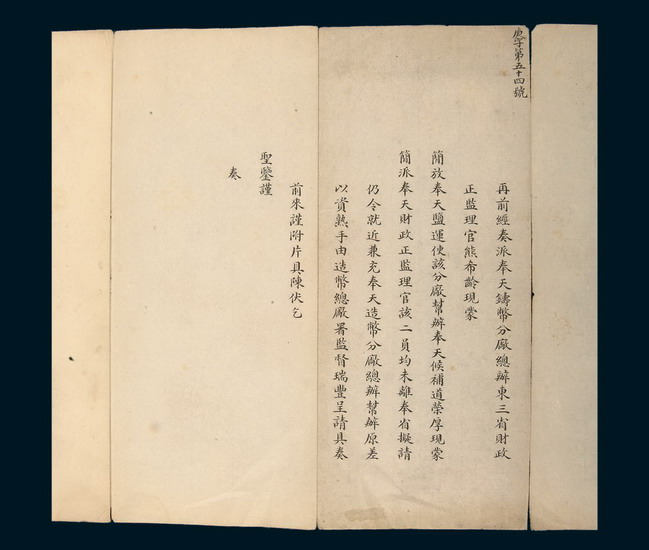 庚字第五十四號
再前經奏派奉天鑄幣分廠總辦東三省財政
正監理官熊希齡現蒙
簡放奉天鹽運使該分廠幫辦奉天候補道榮厚現蒙
簡派奉天財政正監理官該二員均未離奉省擬請
仍令就近兼充奉天造幣分廠總辦幫辦原差
以資熟手由造幣總廠署監督瑞豐呈請具奏
前來謹附片具陳伏乞
聖鑒謹
奏